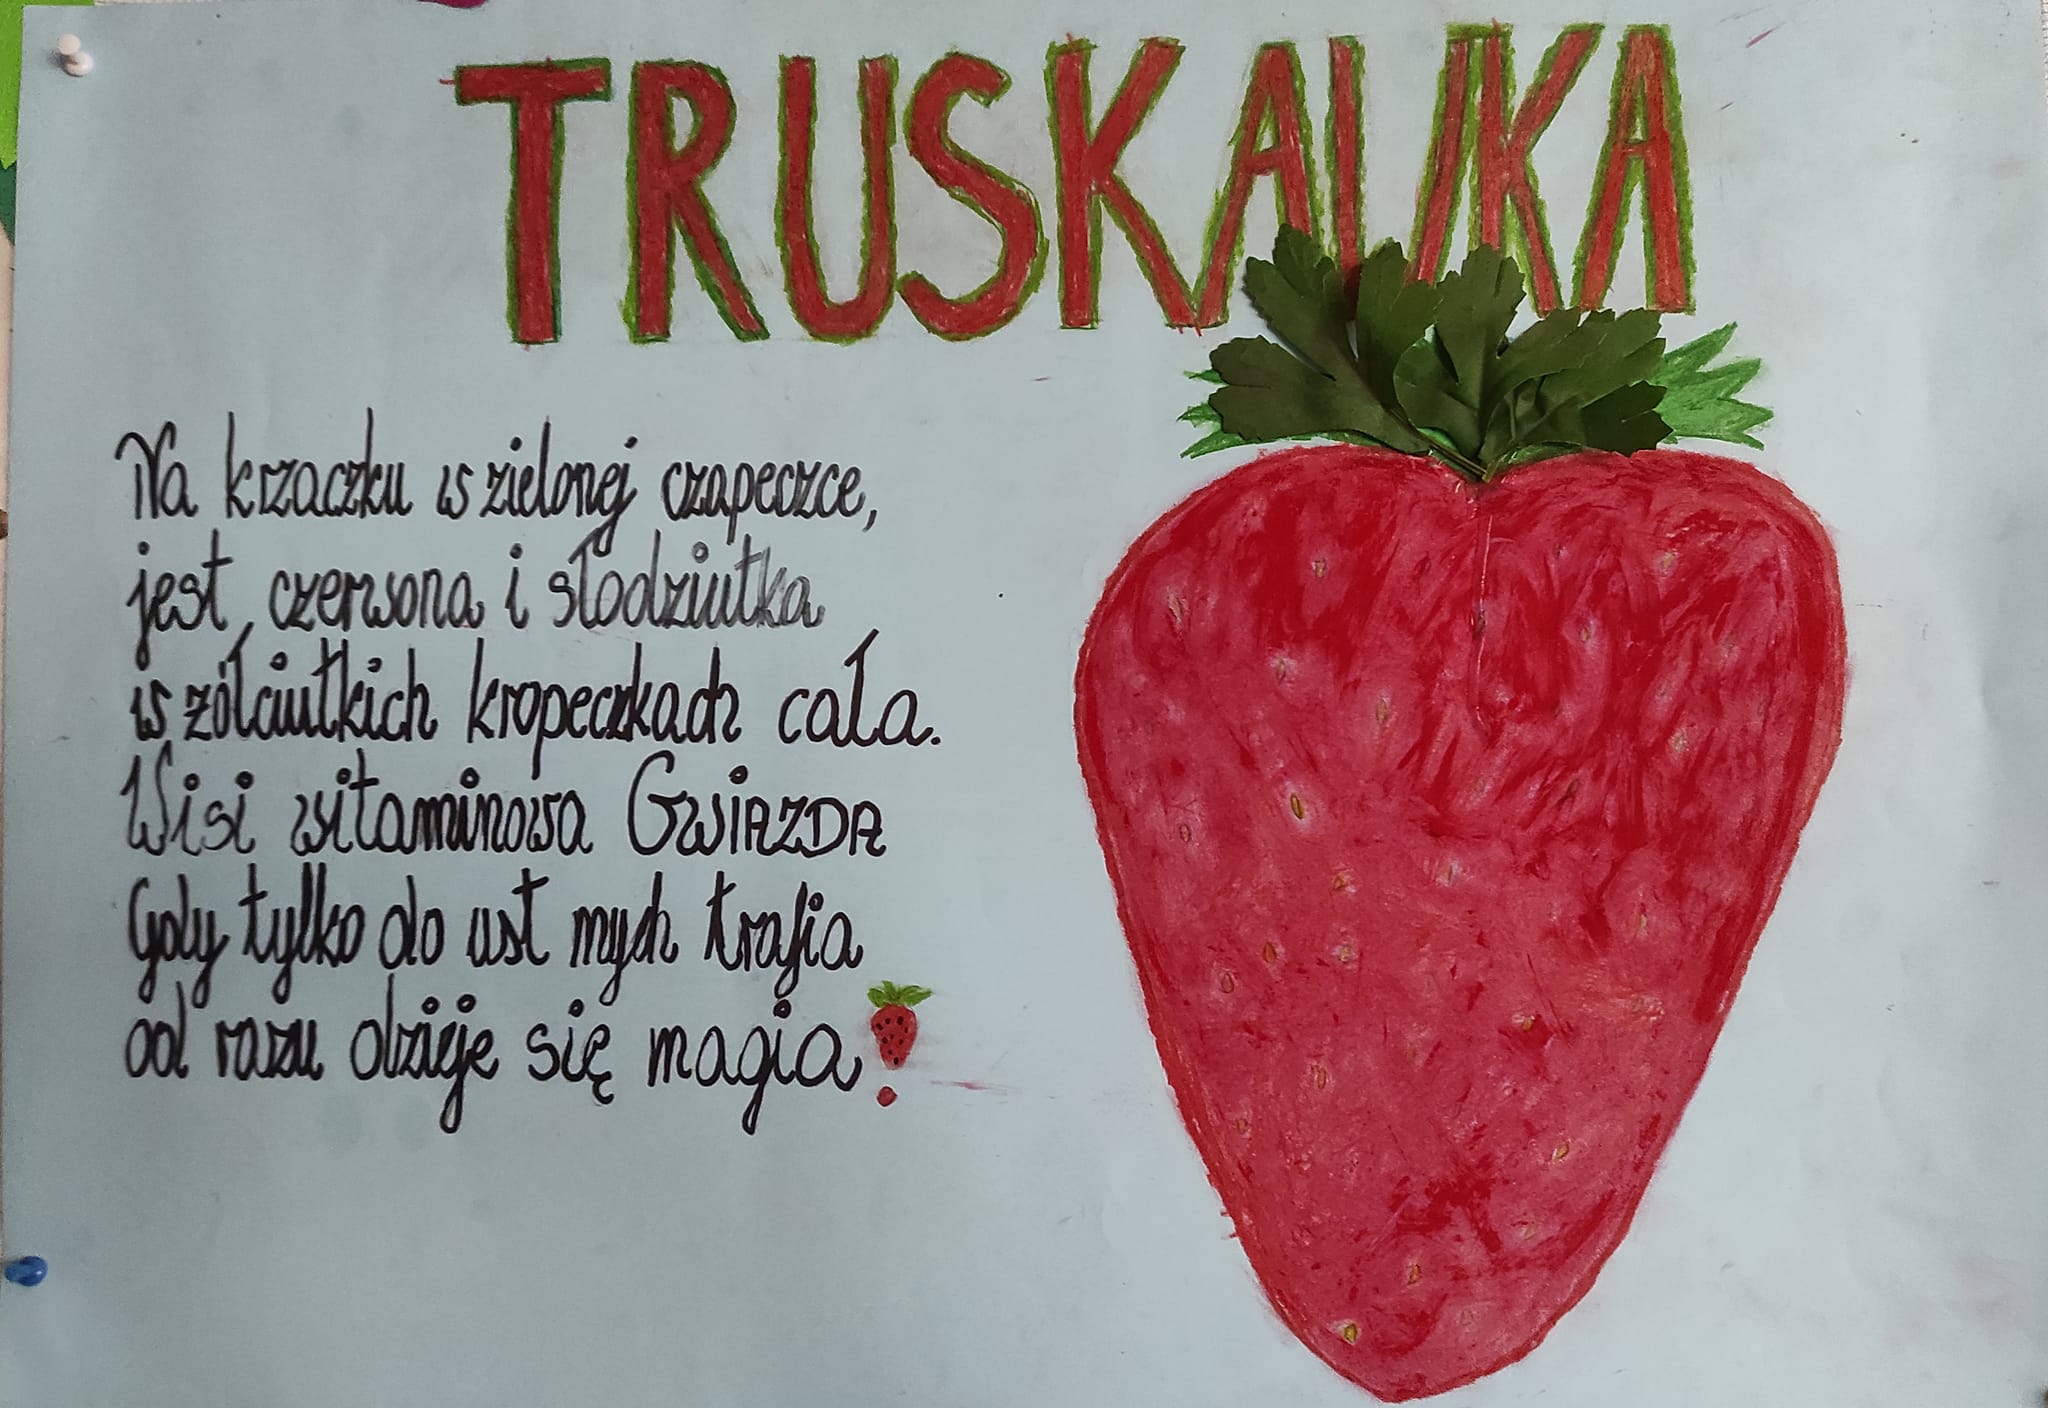 TRUSKAWKA
Na krzaczku w zielonej czapeczce,
jest czerwona i słodziutka
w żółciutkich kropeczkach cała.
Wisi witaminowa GWIAZDA
Gdy tylko do ust mych trafia
od razu dzieje się magia!